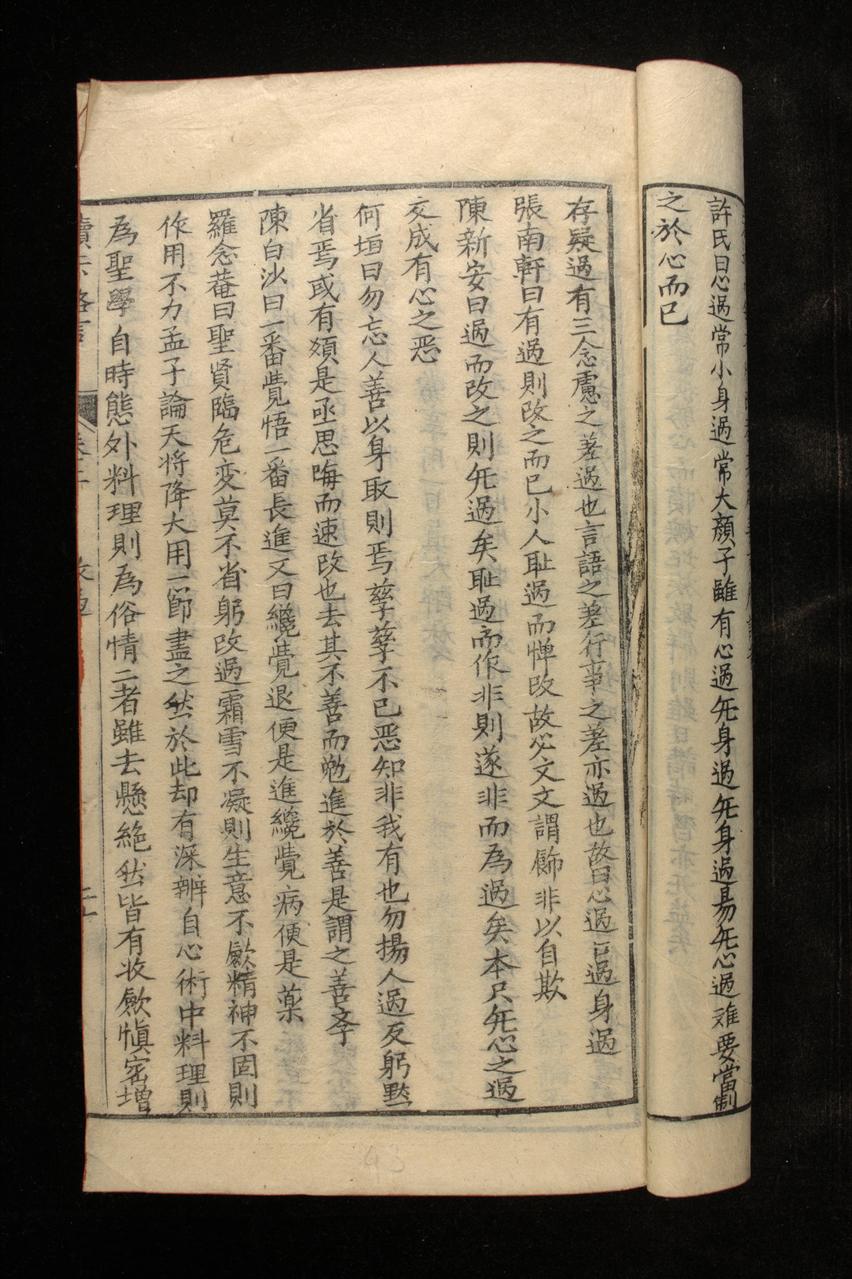 許氏曰心過常小身過常大顔子雖有心過旡身過旡身過易旡心過难要當制
之於心而已
存疑過有三念慮之差過也言語之差行事之差亦過也故曰心過口過身過
張南軒曰有過則改之而已小人耻過而憚改故必文文謂餙非以自欺
陳新安曰過而改之則旡過矣耻過而作非則遂非而為過矣本只旡心之過
交成有心之恶
何垣曰勿忘人善以身取則焉孳孳不已恶知非我有也勿揚人過反躬黙
省焉或有須是亟思晦而速改也去其不善而勉進於善是謂之善孝
陳白沙曰一番覺悟一番長進又曰纔覺退便是進纔覺病便是藥
羅念菴曰聖贤臨危变莫不省躬改過霜雪不凝則生意不歛精神不固則
作用不力孟子論天将降大用一節盡之然於此却有深辨自心術中料理則
為聖學自時態外料理則為俗情二者雖去懸絶然皆有收歛慎密增